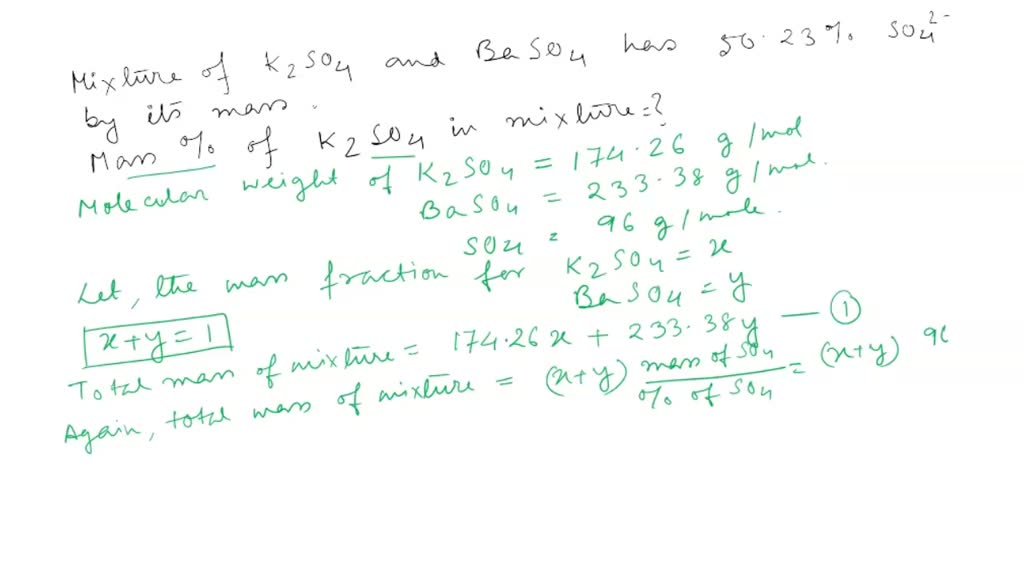 Mixture of K2SO4 and BaSO4 has 50.23% SO4^2-
by its mass.
Mass % of K2SO4 in mixture=?
Molecular weight of K2SO4 = 174.26 g/mol
BaSO4 = 233.38 g/mol.
SO4 = 96 g/mole.
Let, the mass fraction for K2SO4 = x
BaSO4 = y
x+y=1
Total mass of mixture = 174.26x + 233.38y — ①
Again, total mass of mixture = (x+y) mass of SO4 / % of SO4 = (x+y) 96